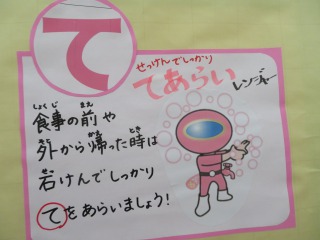 て
せっけんでしっかり
てあらい
レンジャー
食事の前や
外から帰った時は
石けんでしっかり
てをあらいましょう!